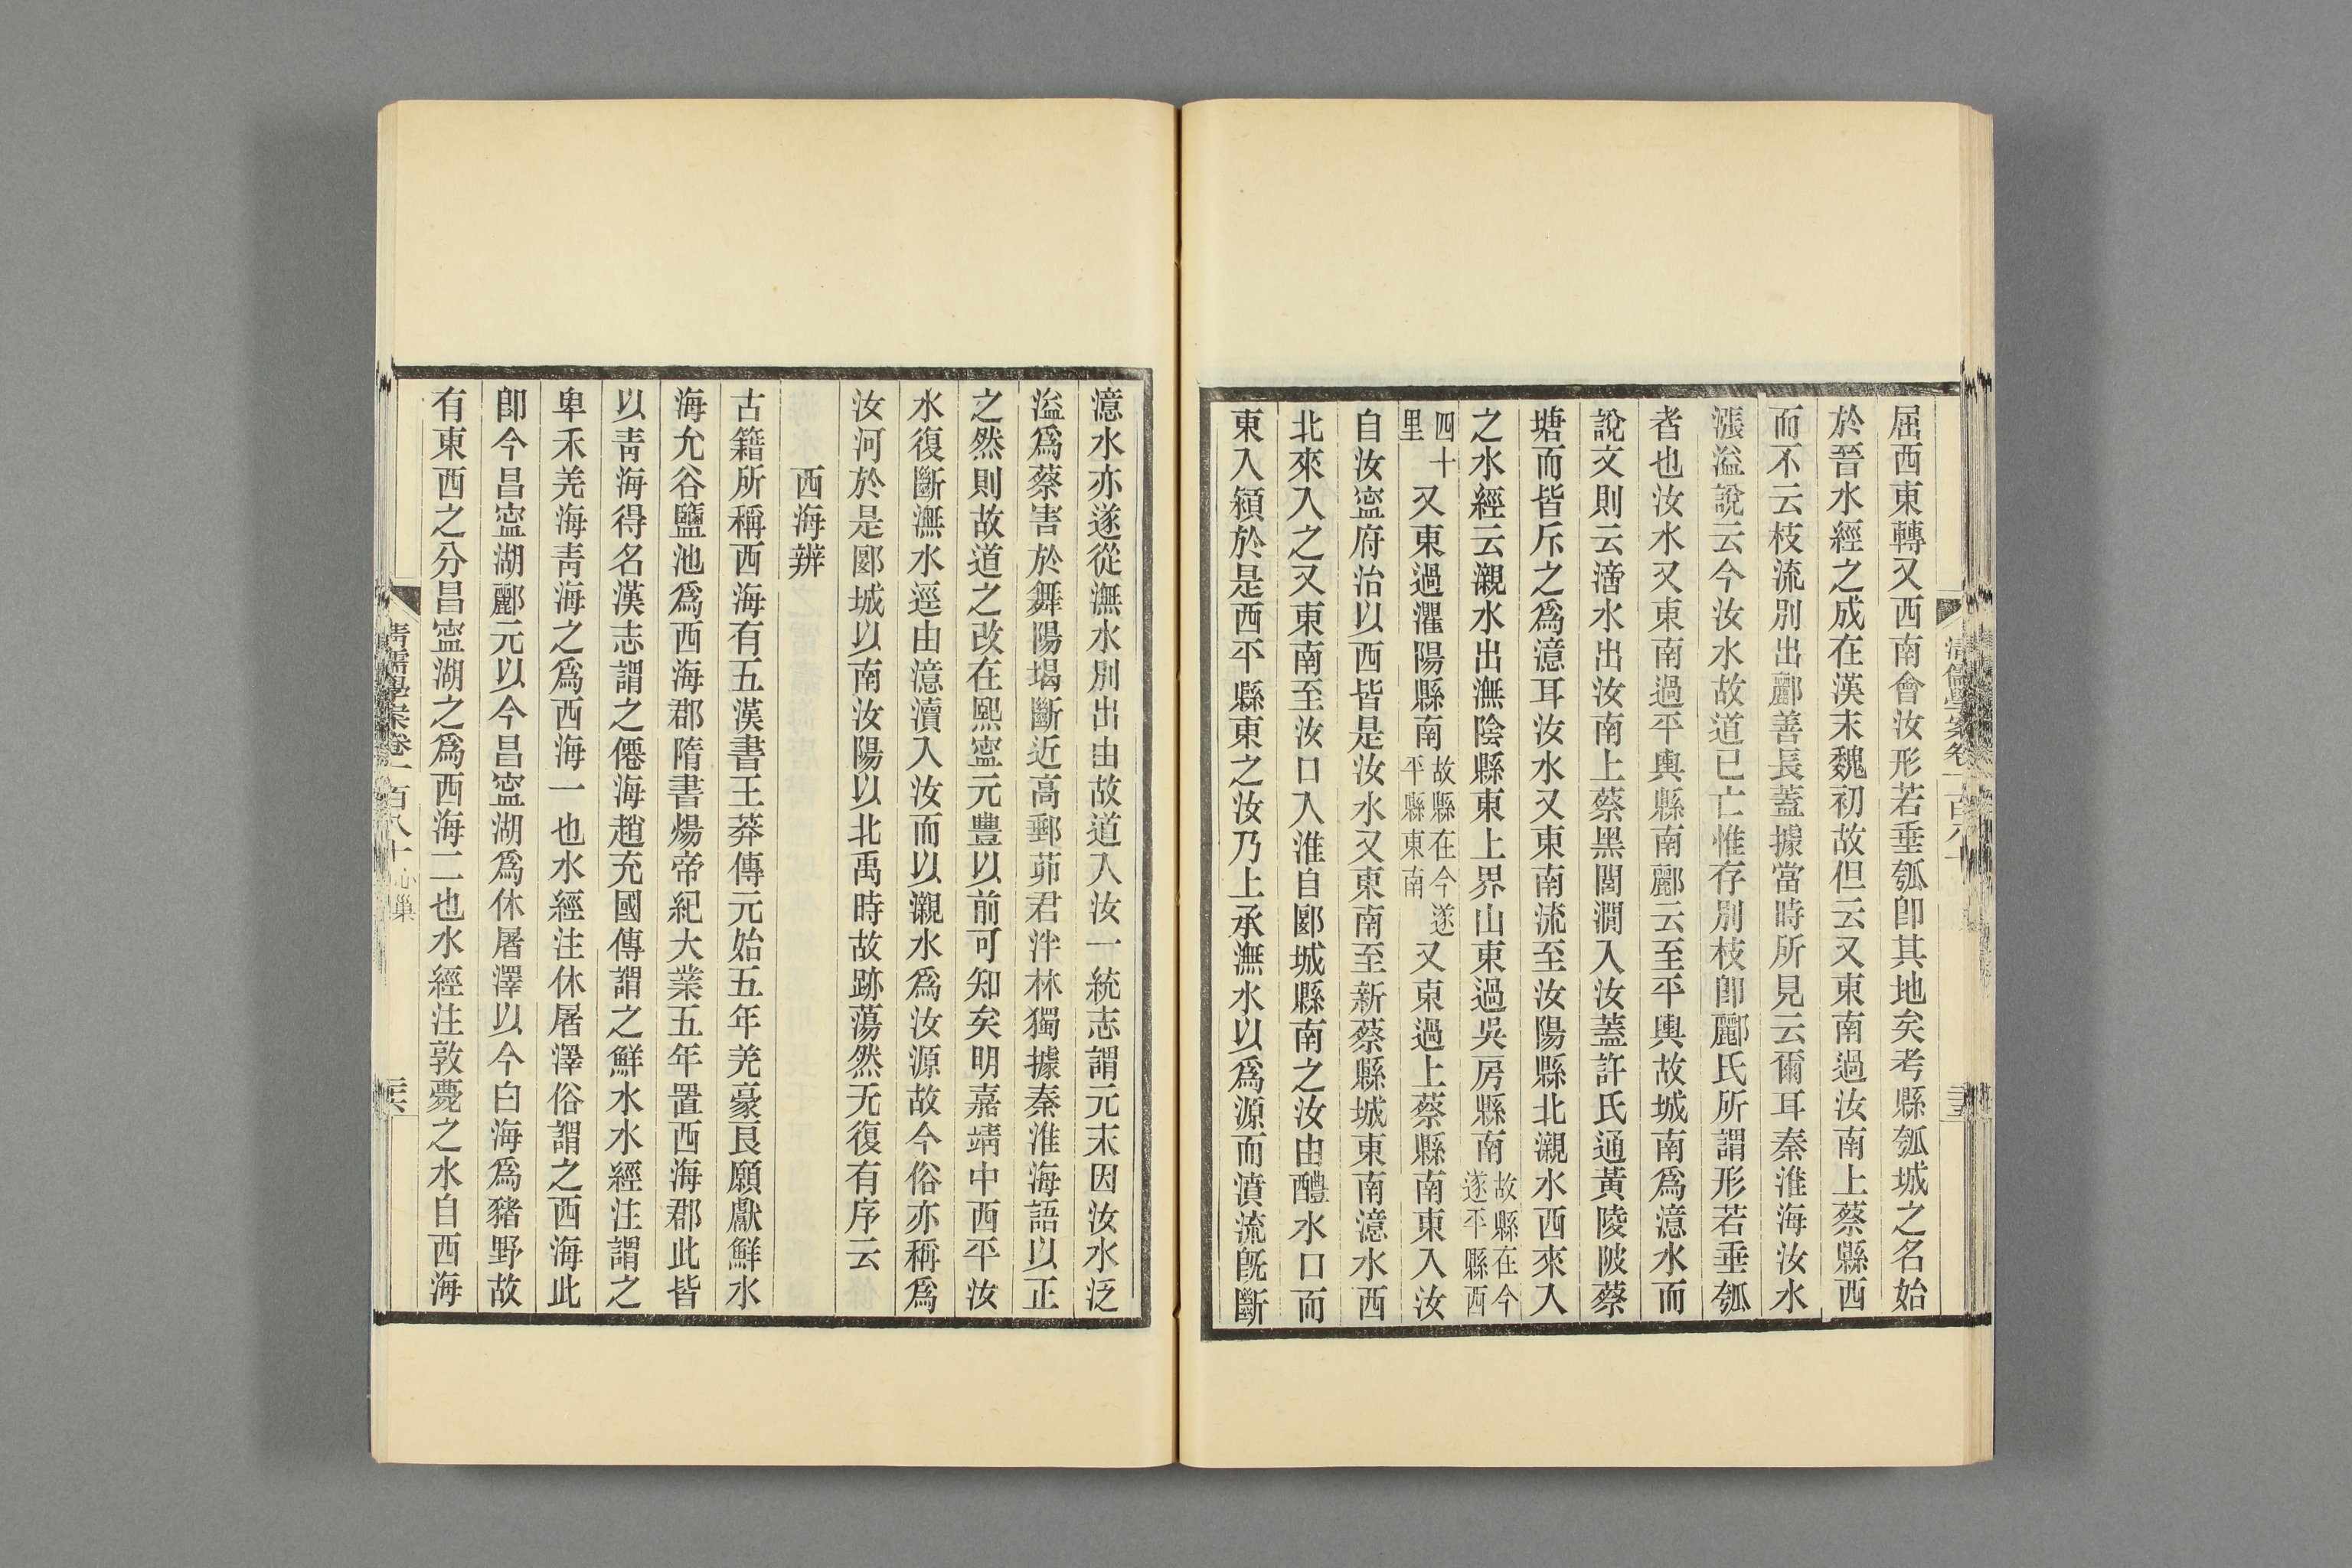 屈西東轉又西南會汝形若垂瓠卽其地矣考縣瓠城之名始
於晉水經之成在漢末魏初故但云又東南過汝南上蔡縣西
而不云枝流別出酈善長蓋據當時所見云爾耳秦淮海汝水
漲溢說云今汝水故道已亡惟存別枝卽酈氏所謂形若垂瓠
者也汝水又東南過平輿縣南酈云至平輿故城南爲澺水而
說文則云㵮水出汝南上蔡黑閭澗入汝蓋許氏通黃陵陂蔡
塘而皆斥之爲澺耳汝水又東南流至汝陽縣北瀙水西來入
之水經云瀙水出潕陰縣東上界山東過吳房縣南故縣在今遂平縣西
四十里又東過灈陽縣南故縣在今遂平縣東南又東過上蔡縣南東入汝
自汝寍府治以西皆是汝水又東南至新蔡縣城東南澺水西
北來入之又東南至汝口入淮自郾城縣南之汝由醴水口而
東入潁於是西平縣東之汝乃上承潕水以爲源而濆流旣斷
澺水亦遂從潕水別出由故道入汝一統志謂元末因汝水泛
溢爲蔡害於舞陽堨斷近高郵茆君泮林獨據秦淮海語以正
之然則故道之改在熙寍元豐以前可知矣明嘉靖中西平汝
水復斷潕水逕由澺瀆入汝而以瀙水爲汝源故今俗亦稱爲
汝河於是郾城以南汝陽以北禹時故跡蕩然无復有序云
西海辨
古籍所稱西海有五漢書王莽傳元始五年羌豪良願獻鮮水
海允谷鹽池爲西海郡隋書煬帝紀大業五年置西海郡此皆
以靑海得名漢志謂之僊海趙充國傳謂之鮮水水經注謂之
卑禾羌海靑海之爲西海一也水經注休屠澤俗謂之西海此
卽今昌寍湖酈元以今昌寍湖爲休屠澤以今白海爲豬野故
有東西之分昌寍湖之爲西海二也水經注敦薨之水自西海
清儒學案卷一百八十 心巢